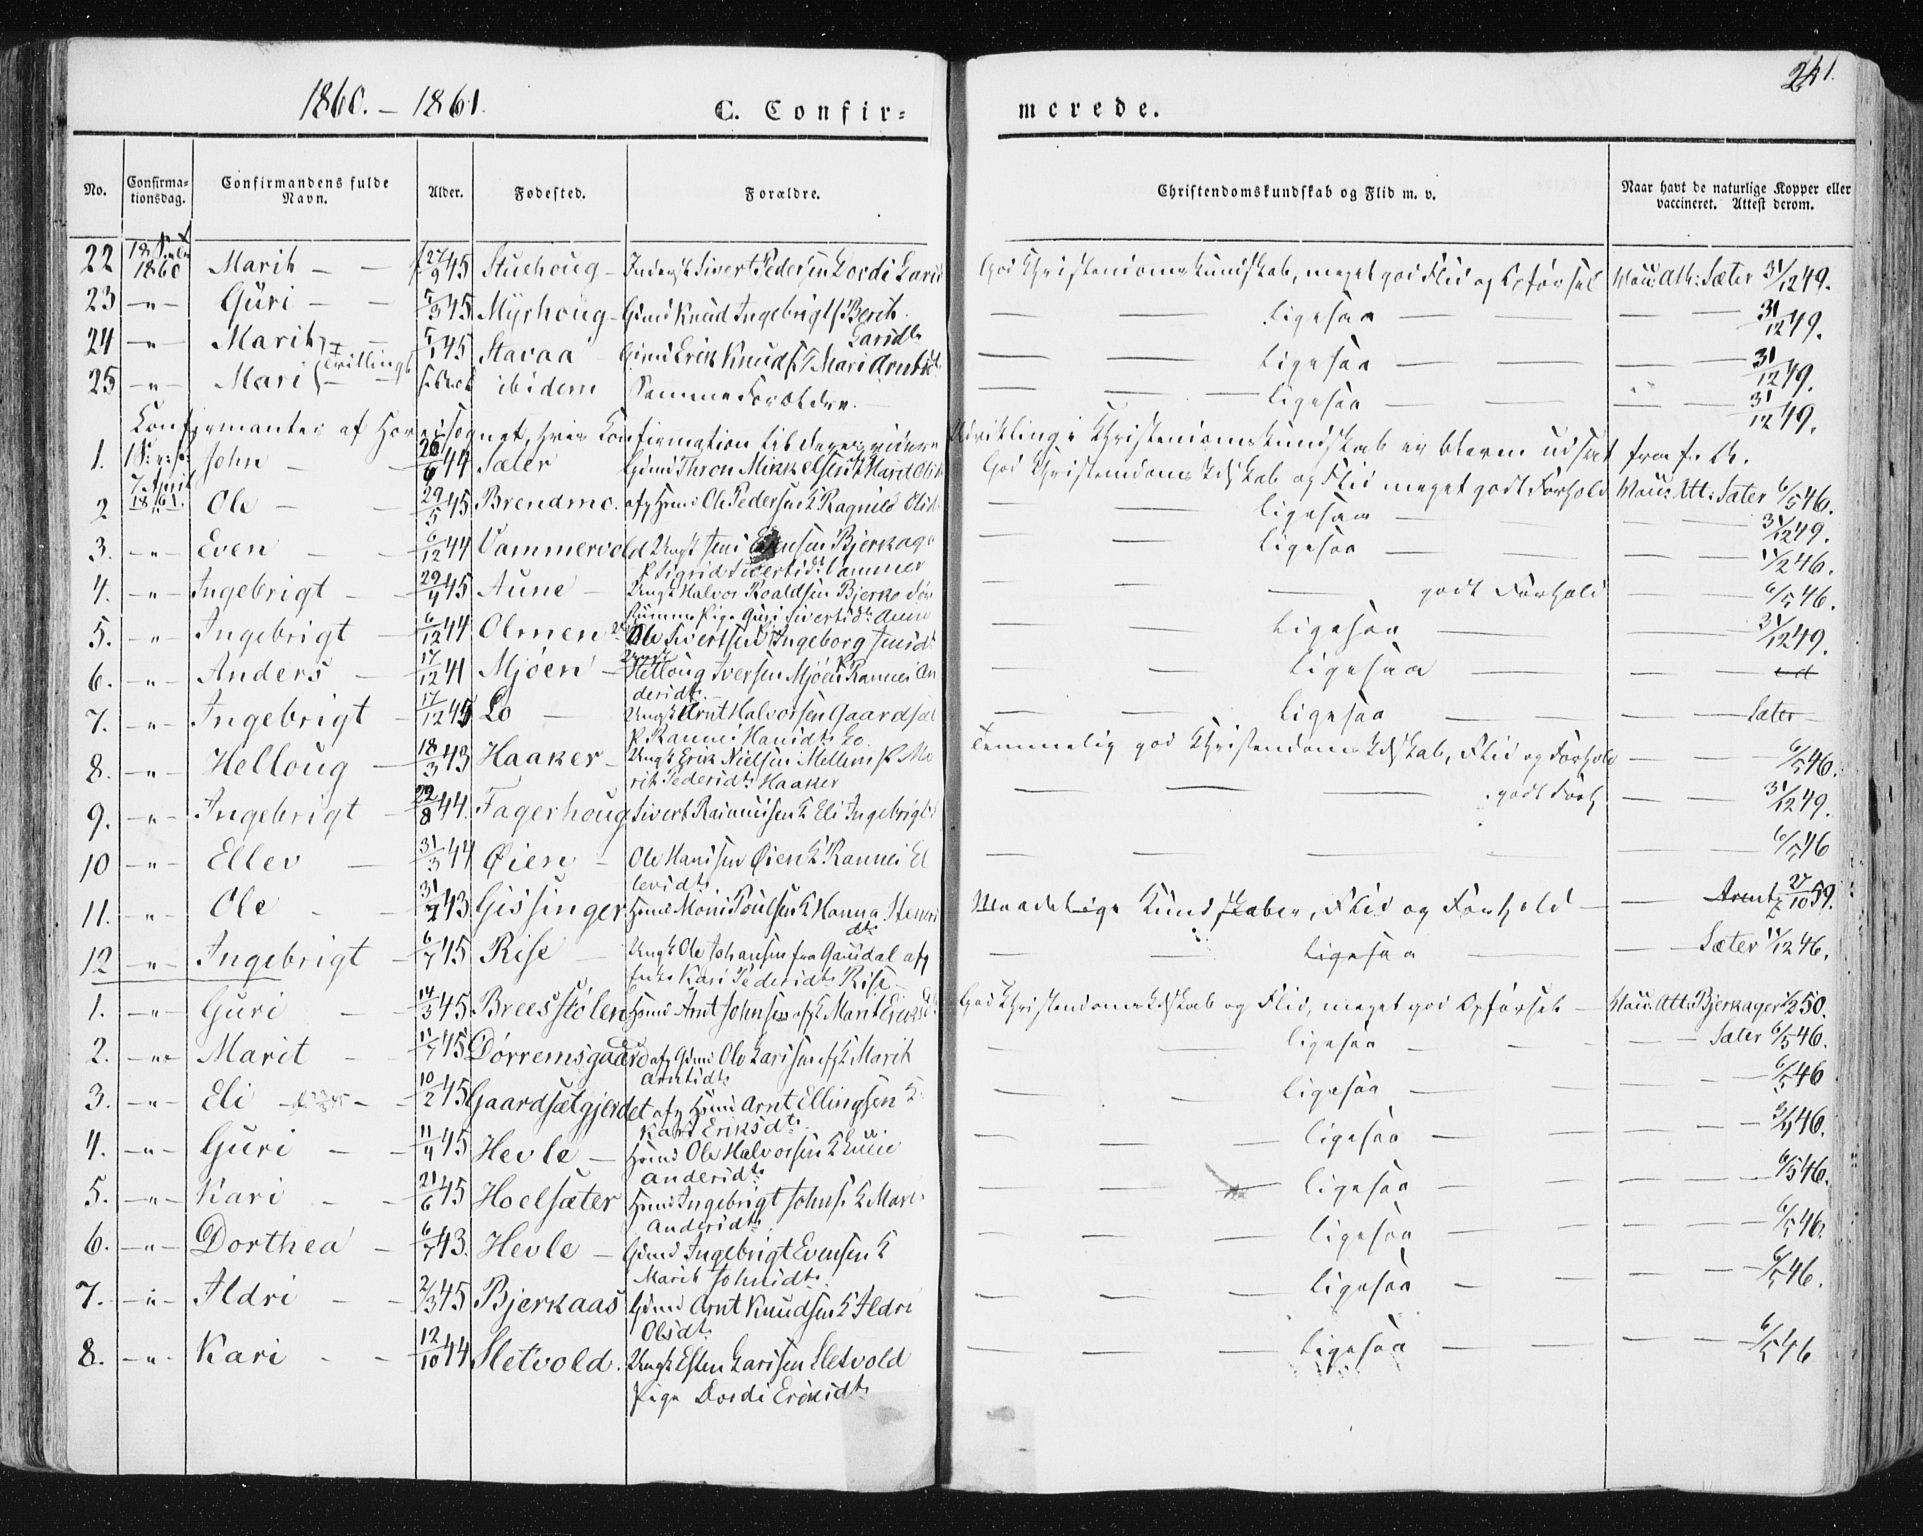 1860. - 1861. C. Confir= merede. 251.
No. Confirma=tionsdag. Confirmandens fulde Navn. Alder. Fødested. Forældre. Christendomskundskab og Flid m. v. Naar havt de naturlige Kopper eller vaccineret. Attest derom.
22 1860 Marit - - 27/9 45 Stuehoug - Sivert Pedersen Dordi God Christendomskundskab, meget god Flid og Opførsel Sæter 31/12 49.
23 -"- Guri - - 5/3 45 Myrhoug - Gmd Knud Ingebrigts Berit Larsdt. - - ligesaa - - - 31/12 49.
24 -"- Marit - 45 Stavaa Gmd Erik Knuds. Mari Arntsd. - - ligesaa - - - 31/12 49.
25 -"- Mari } Tvillinger - ibidem Samme Forældre. - - - ligesaa - - 31/12 49.
Confirmanter af Sognet, hvis Confirmation til deres videre Udvikling i Christendomskundskab er bleven udsat fra f. A.
1. 7 April 1861. John - 26/6 44 Sæter Gmd Thron Mikkelsen K Marit God Christendoms Kdskab og Flid meget godt Forhold Att: Sæter 6/5 46.
2 Ole - 29/5 45 Brendmo. afg Hmd Ole Pedersen K Ragnild Olsd. - - ligesaa - - - 31/12 49.
3. -"- Even - 6/12 44 Vammervold Ungk Bjerkager P. Sigrid Sivertsdt. Vammer - - ligesaa - - - 11/12 46.
4. -"- Ingebrigt - 29/4 45 Aune - Ungk Halvor Roaldsen Bjerke Pige Guri Sivertsdt. Aune - - - godt Forhold - - 6/5 46.
5. -"- Ingebrigt - 6/12 44 Olmen Ole Sivertsen K Ingeborg - - ligesaa - - - 31/12 49.
6. -"- Anders - 17/12 41 Mjøen - Ungk Helloug Iversen Mjøen P. Rannei Andersdt. - - ligesaa - - -
7. -"- Ingebrigt - 17/12 45 Lo - Ungk Arnt Halvorsen Gaardsæt P. Rannei Hansdt. Lo. - - ligesaa - - - Sæter -
8. -"- Helloug - 18/3 43 Haaker - Ungk Erik Nielsen Mellem P. Marit Pedersdt. Haaker Temmelig god Christendoms Kdskab, Flid og Forhold - - 6/5 46.
9. -"- Ingebrigt - 29/8 44. Fagerhoug Sivert Rasmussen K Eli Ingebrigtsd. - - - godt Forh - - 31/12 49.
10 -"- Ellev - 31/3 44 Øien - Ole Hansen Øien K Rannei Ellevsdt. - - - - - 6/5 46
11. -"- Ole - 43 Gissinger Hmd Mons Poulsen K Hanna Stensdt. Maadelige Kundskaber, Flid og Forhold - Arentz 27/10 59.
12 -"- Ingebrigt - 6/7 45 Rise - Ungk Ole Johansen fra Gauldal afg Enke Kari Pedersdt. Rise - - - ligesaa - - Sæter 11/12 46.
1. -"- Guri - 14/3 45 Breesstølen Hmd Arnt Johnsen afg K Marit Eriksd. God Christendoms Kdskab og Flid, meget god Opførsel - Att: Bjerkager 50.
2. -"- Marit - 45 Dørremsgaard afg Gmd Ole Larssen afg K Marit Arntsdt. - - ligesaa - - - Sæter 6/5 46.
3. -"- Eli - - 10/2 45 Gaardsætgjerdet afg Hmd Arnt Ellingsen K Kari Eriksdt. - - ligesaa - - - 6/5 46
4. -"- Guri - - 11/4 45 Hevle - Hmd Ole Halvorsen K Andersdt. - - ligesaa - - - 46.
5. -"- Kari - - 21/6 45 Hoelsæter Hmd Ingebrigt Johns. K Mari Andersdt. - - ligesaa - - - 6/5 46.
6. -"- Dorthea - 6/7 43. Hevle - Gmd Ingebrigt Evensen K Marit Johnsdt. - - ligesaa - - - 6/5 46.
7. -"- Ildri - - 2/3 45 Bjerkaas Gmd Arnt Knudsen K Ildri Olsdt. - - ligesaa - - - 6/5 46.
8. -"- Kari - - 12/10 44 Sletvold. Ungk Esten Larssen Sletvold Pige Dordi Eriksdt. - - ligesaa - - - 6/5 46